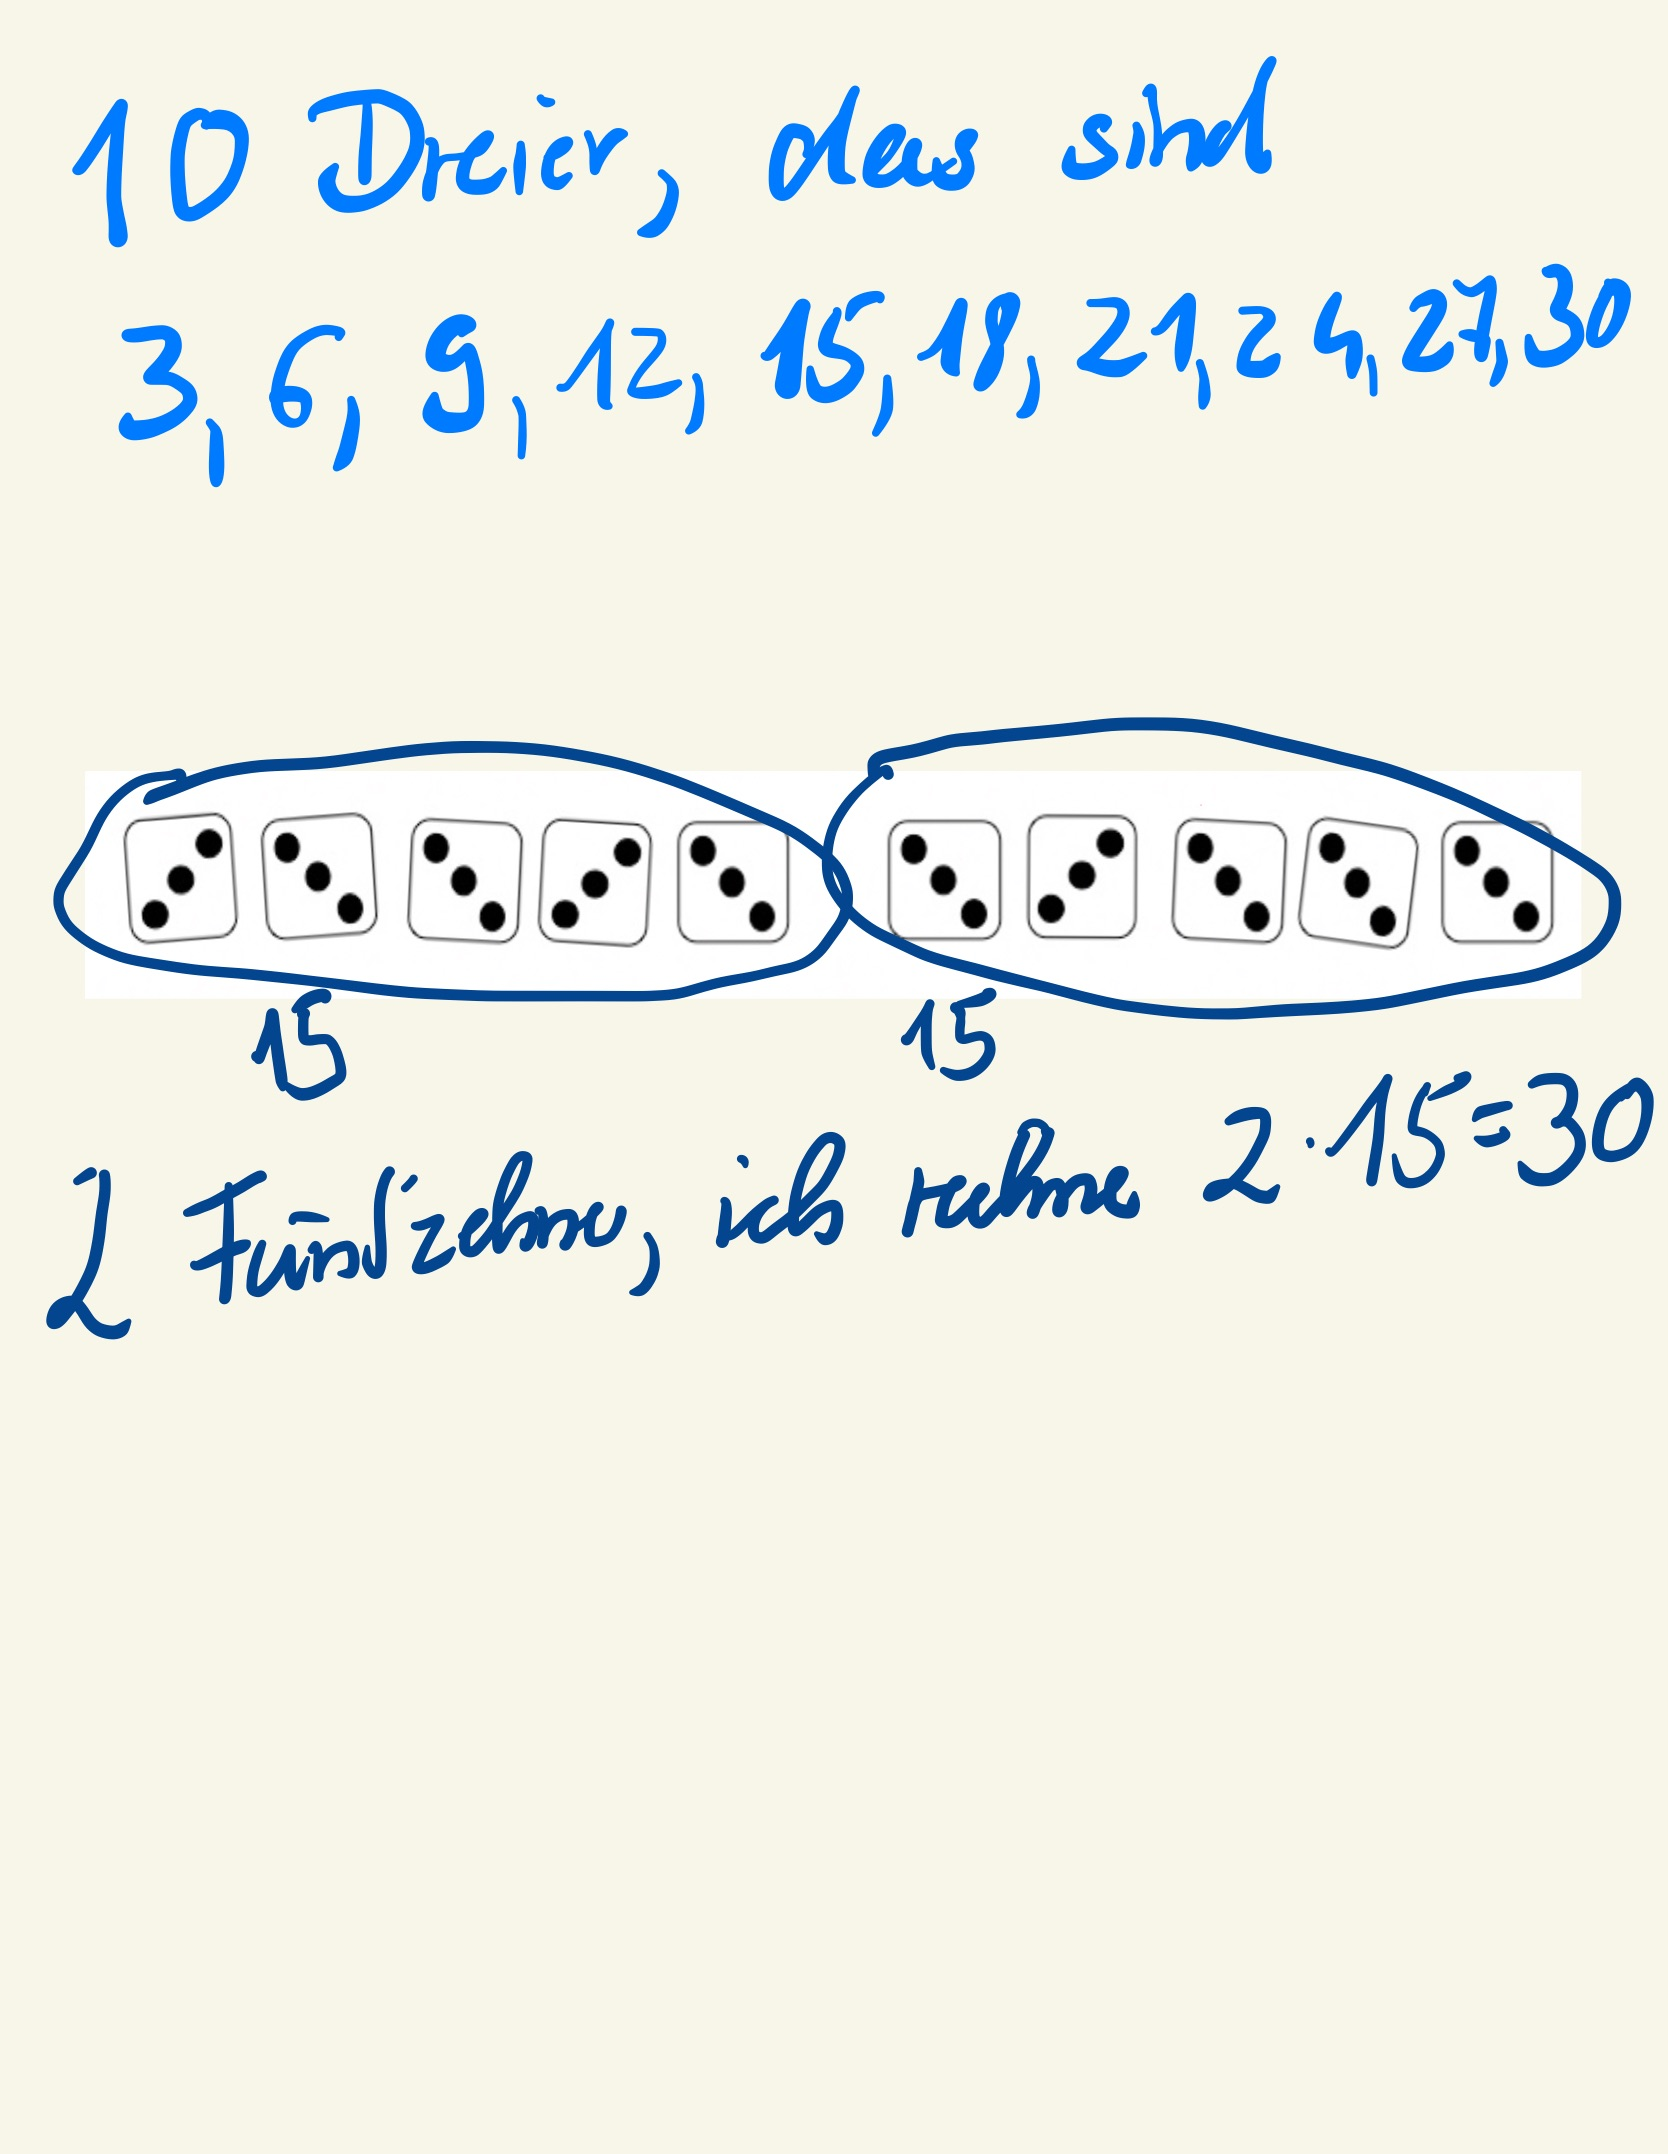 10 Dreier, das sind
3, 6, 9, 12, 15, 18, 21, 24, 27, 30
15 15
2 Fünfzehne, ich rechne 2·15=30